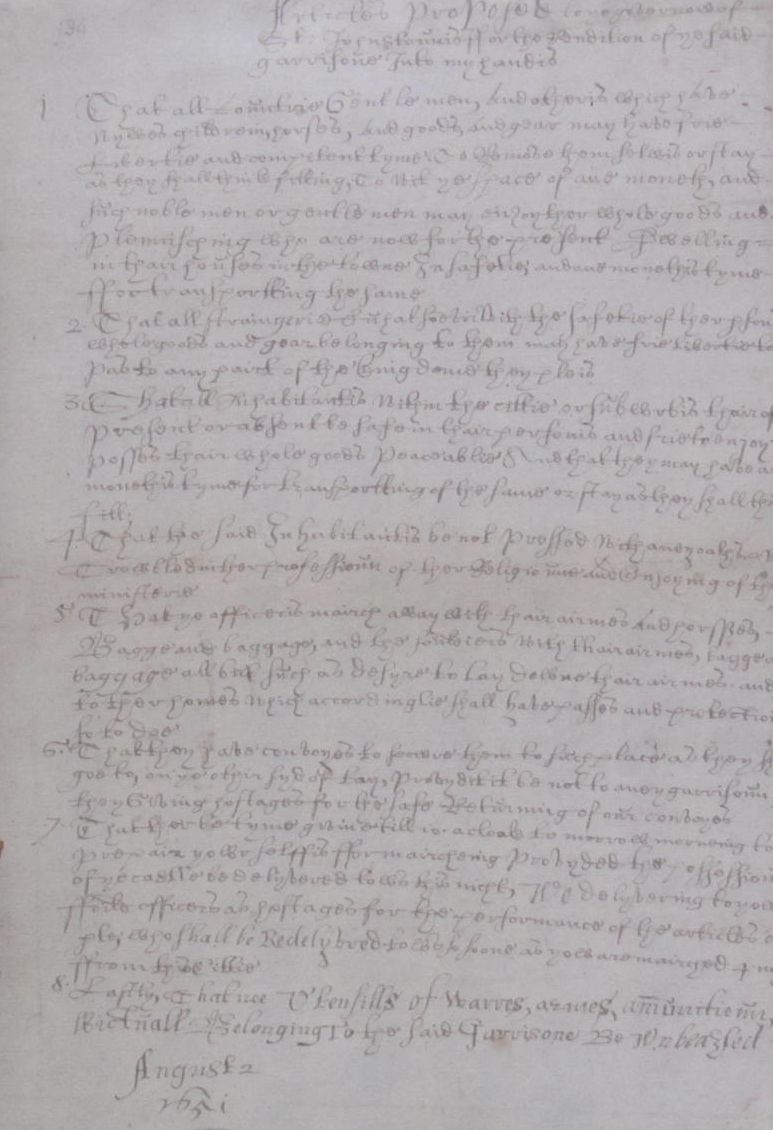 134
Articles Proposed to ye governour of
St: Johnstounis ffor the Rendition of ye said
garrisone Into my handis
1 That all Countrie Gentlemen, And otheris which have
wyves children, horses, And goods, and gear may have frie
Libertie and competent tyme To Remove themselvis or stay
as they shall think fitting, To wit ye space of ane moneth, and
such noble men or gentlemen may enjoy ther whole goods and
Plennisching who are now for the present Dwelling
in thair houses in the towne In safetie, and ane monethis tyme
ffor transportting the same
2 That all straingeris What soever with the safetie of ther
whole goods and gear belonging to them may have frie libertie to
Pas to any pairt of the Kingdome they pleis
3. That all Inhabitantis within the cittie or suburbis thairof
Present or absent be safe in thair personis and frie to enjoy
posses thair whole goods Peaceablie And that they may have a
monethis tyme for transportting of the same or stay as they shall
fitt:
4. That the said Inhabitantis be not Pressed with aney oaths
Trowbled in ther professioun of ther Religioune and Enjoying of
ministerie
5 That ye officeris mairch away with thair airmes And horsses,
Bagge and baggage, and the souldiers with thair airmes, bagge
baggage all but such as desyre to Lay downe thair airmes and
to ther homes which accordinglie shall have passes and protection
so to doe
6. That they have convoyes to secure them to such place as they
goe to, on ye othir syd of tay, Provydit it be not to aney garrisoun
they Giving hostages for the safe Returning of our convoyes
7. That ther be tyme givine till 10 a cloak to morrow morneing to
Prepair yowr selffis ffor mairching Provyded the possession
of ye castle be delyvered to ws this night, We delyvering to yow
officers as hostages for the performance of the articles
who shall be Redelyvred to ws so soone as yow are mairched
ffrom the cittie
8. Lastly, That noe Utensills of Warres, armes, amunitioun,
Victuall Belonging To the said Garrisone Be Imbeazled
August 2
1651